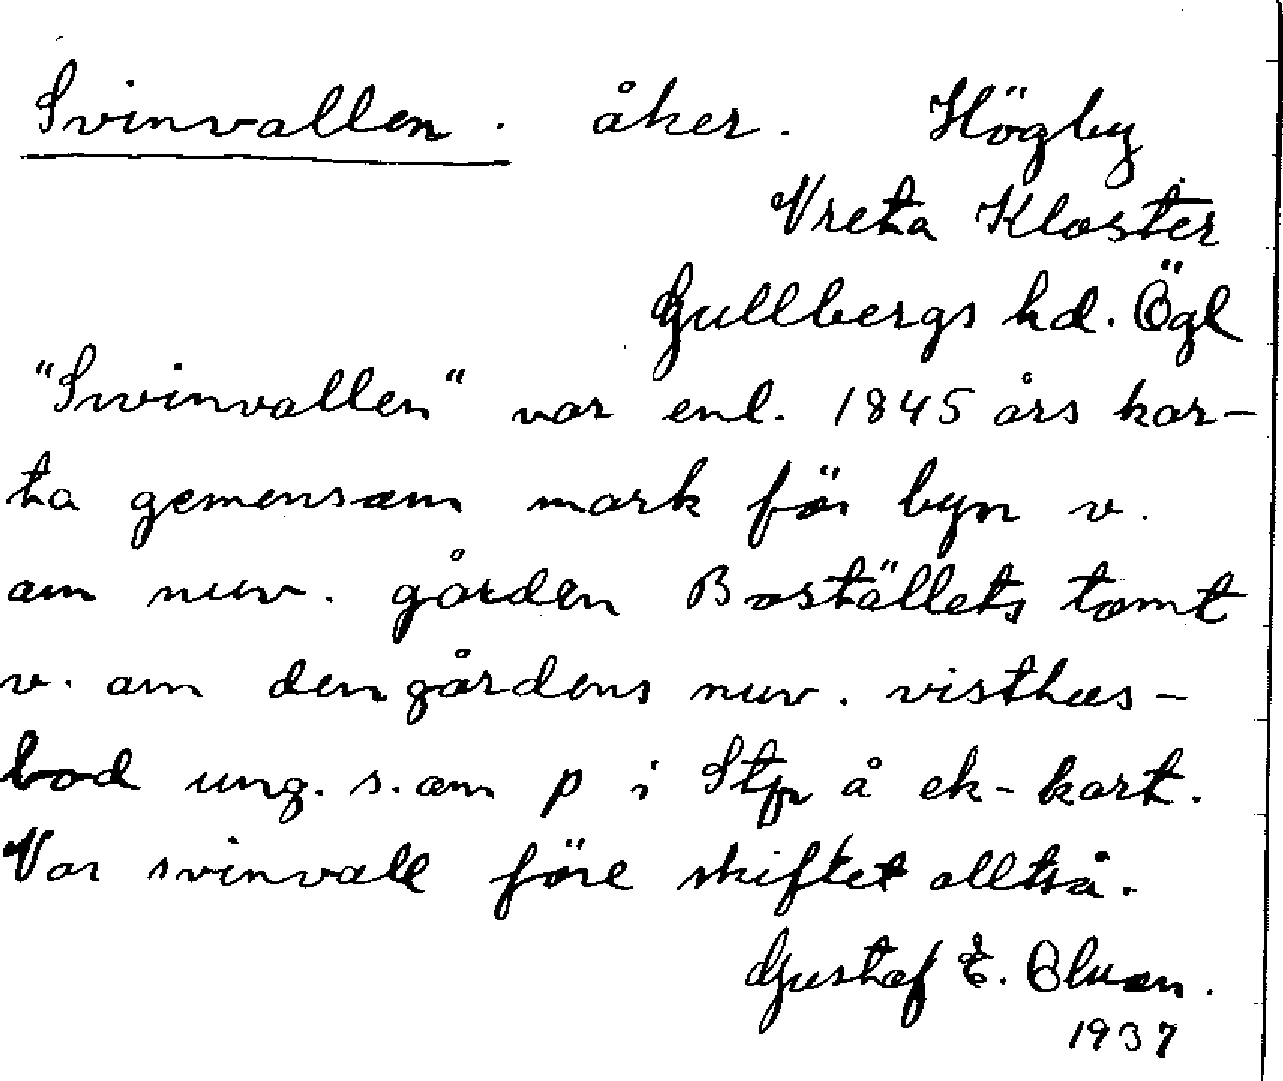 Svinvallen. åker. Högby
Vreta Kloster
Gullbergs hd. Ögl
"Svinvallen" var enl. 1845 års kar-
ta gemensam mark för byn v.
om nuv. gården Boställets tomt
v. om den gårdens nuv. visthus-
bod ung. s. om p i Stp å ek-kart.
Var svinvall före skiftet alltså.
Gustaf E.
1937